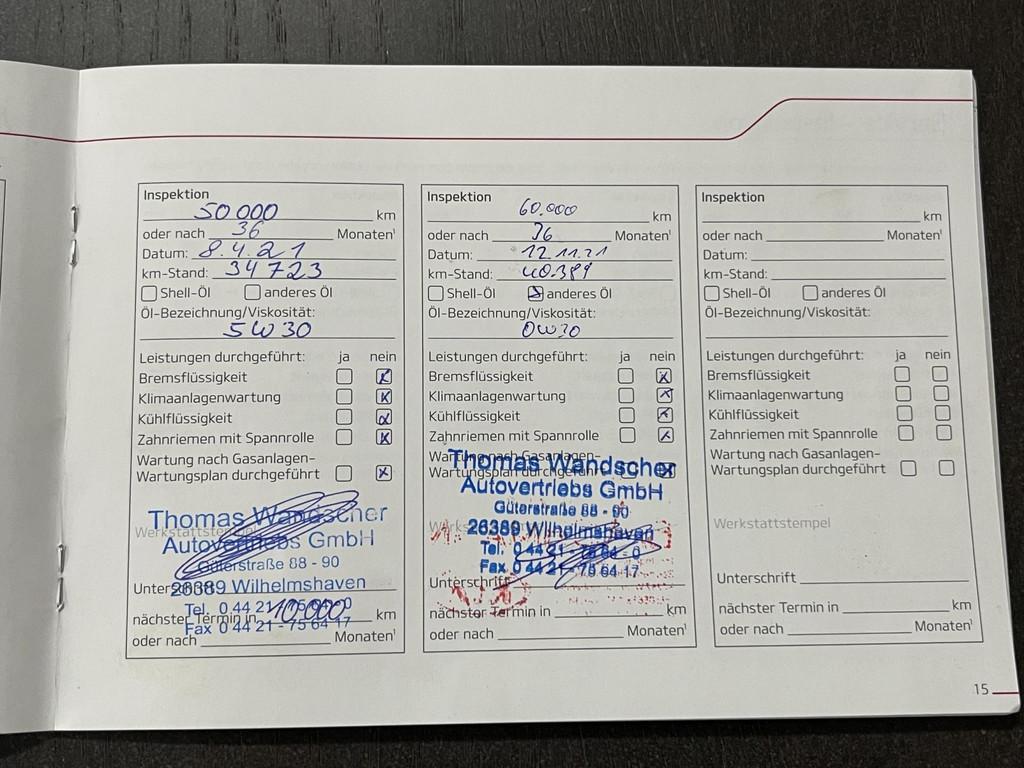 Inspektion
50 000 km
oder nach 36 Monaten¹
Datum: 8.4.21
km-Stand: 34723
Shell-Öl anderes Öl
Öl-Bezeichnung/Viskosität:
5W30
Leistungen durchgeführt: ja nein
Bremsflüssigkeit
Klimaanlagenwartung
Kühlflüssigkeit
Zahnriemen mit Spannrolle
Wartung nach Gasanlagen-
Wartungsplan durchgeführt
Thomas Wandscher
Werkstattstempel
Autovertriebs GmbH
Güterstraße 88 - 90
Unterschrift
26389 Wilhelmshaven
Tel. 0 44 21
nächster Termin in 10.000 km
Fax 0 44 21 - 75 64 17
oder nach Monaten¹
Inspektion
60.000 km
oder nach 36 Monaten¹
Datum: 12.11.21
km-Stand: 40.389
Shell-Öl anderes Öl
Öl-Bezeichnung/Viskosität:
0W20
Leistungen durchgeführt: ja nein
Bremsflüssigkeit
Klimaanlagenwartung
Kühlflüssigkeit
Zahnriemen mit Spannrolle
Wartung nach Gasanlagen-
Thomas Wandscher
Wartungsplan durchgeführt
Autovertriebs GmbH
Güterstraße 88 - 90
26389 Wilhelmshaven
Tel. 0 44 21 - 75 64 - 0
Fax 0 44 21 - 75 64 17
Unterschrift
nächster Termin in km
oder nach Monaten¹
Inspektion
km
oder nach Monaten¹
Datum:
km-Stand:
Shell-Öl anderes Öl
Öl-Bezeichnung/Viskosität:
Leistungen durchgeführt: ja nein
Bremsflüssigkeit
Klimaanlagenwartung
Kühlflüssigkeit
Zahnriemen mit Spannrolle
Wartung nach Gasanlagen-
Wartungsplan durchgeführt
Werkstattstempel
Unterschrift
nächster Termin in km
oder nach Monaten¹
15